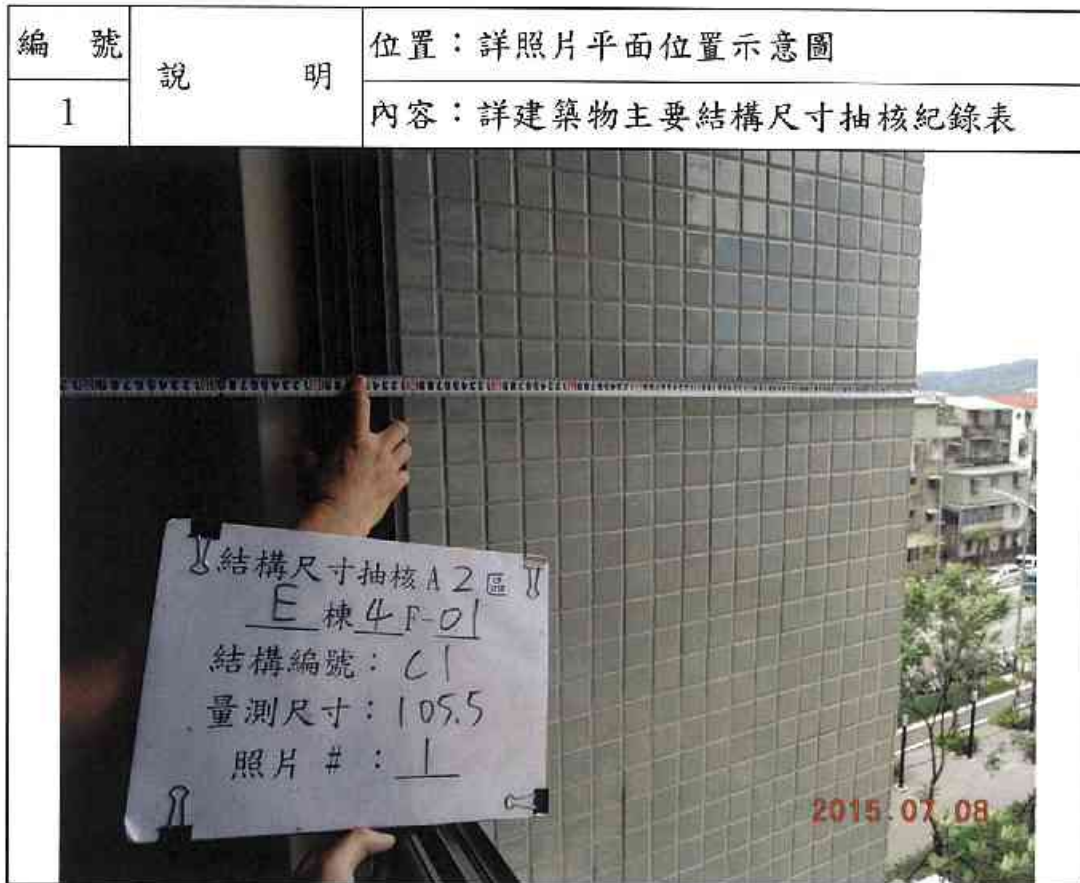 編 號
說 明
位置：詳照片平面位置示意圖
1
內容：詳建築物主要結構尺寸抽核紀錄表
結構尺寸抽核A2區
E棟4F-01
結構編號：C1
量測尺寸：105.5
照片#：1
2015.07.08